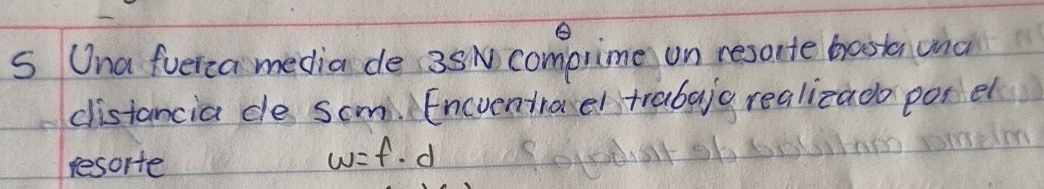 θ
5 Una fuerza media de 35N comprime un resorte hasta una
distancia de 5cm. Encuentra el trabajo realizado por el
resorte w=f.d